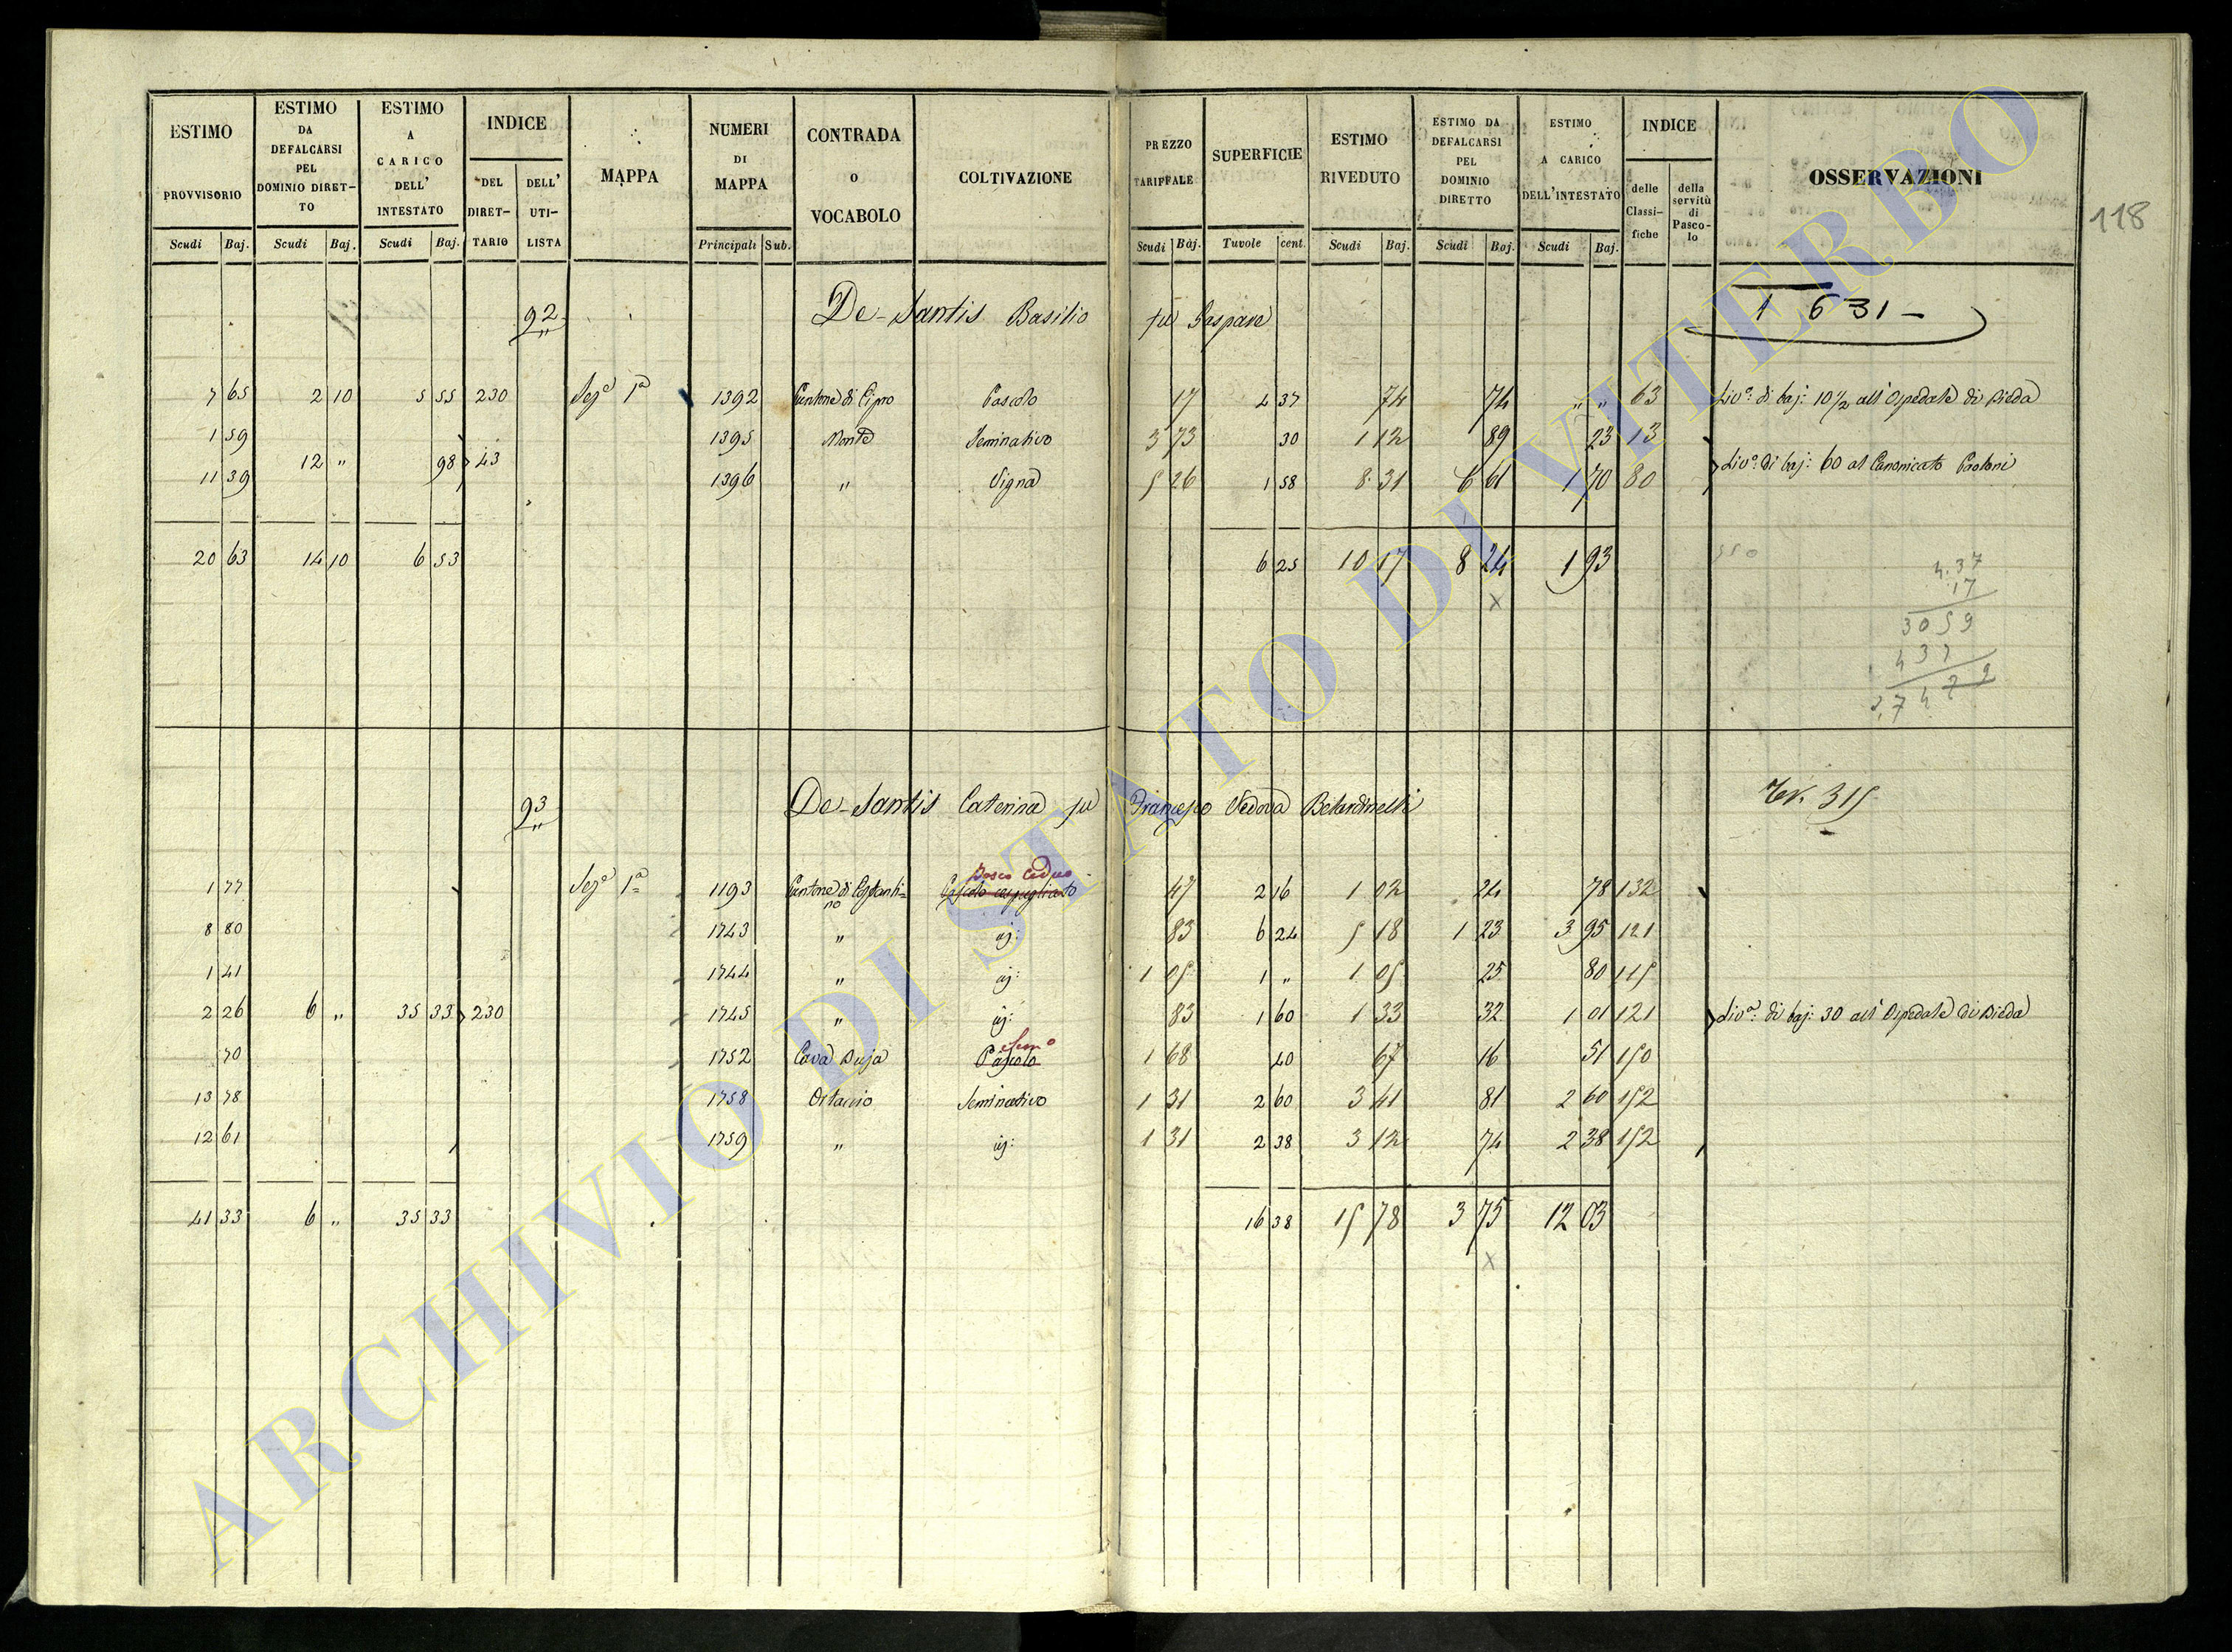 118
ESTIMO PROVVISORIO Scudi Baj. | ESTIMO DA DEFALCARSI PEL DOMINIO DIRET-TO Scudi Baj. | ESTIMO A CARICO DELL' INTESTATO Scudi Baj. | INDICE DEL DIRET-TARIO | DELL' UTI-LISTA | MAPPA | NUMERI DI MAPPA Principali Sub. | CONTRADA O VOCABOLO | COLTIVAZIONE | PREZZO TARIFFALE Scudi Baj. | SUPERFICIE Tavole cent. | ESTIMO RIVEDUTO Scudi Baj. | ESTIMO DA DEFALCARSI PEL DOMINIO DIRETTO Scudi Baj. | ESTIMO A CARICO DELL'INTESTATO Scudi Baj. | INDICE delle Classi-fiche | della servitù di Pasco-lo | OSSERVAZIONI
92 De-Santis Basilio fu Gaspare 1 631 –
7 65 2 10 5 55 230 Sez.e 1a 1392 Cantone di Cipro Pascolo 17 4 37 74 74 " " 63 Liv.o di baj: 10½ all'Ospedale di Bieda
1 59 1395 Monte Seminativo 3 73 30 1 12 89 23 13
12 " 98 43 Liv.o di baj: 60 al Canonicato Paoloni
11 39 1396 " Vigna 5 26 1 58 8 31 6 61 1 70 80
20 63 14 10 6 53 6 25 10 17 8 24 1 93
x
4.37
17
3059
437
93 De-Santis Caterina fu Francesco Vedova Belardinelli 315
1 77 Sez.e 1a 1193 Cantone di Costanti=no Bosco Ceduo Pascolo cespugliato 47 2 16 1 02 24 78 132
8 80 1743 " id: 83 6 24 5 18 1 23 3 95 121
1 41 1744 " id: 1 05 1 " 1 05 25 80 115
2 26 6 " 35 33 230 1745 " id: 83 1 60 1 33 32 1 01 121 Liv.o di baj: 30 all'Ospedale di Bieda
70 1752 Cava Buja Sem.o Pascolo 1 68 40 67 16 51 150
13 78 1758 Seminativo 1 31 2 60 3 41 81 2 60 152
12 61 1759 " id: 1 31 2 38 3 12 74 2 38 152
41 33 6 " 35 33 16 38 15 78 3 75 12 03
x
ARCHIVIO DI STATO DI VITERBO